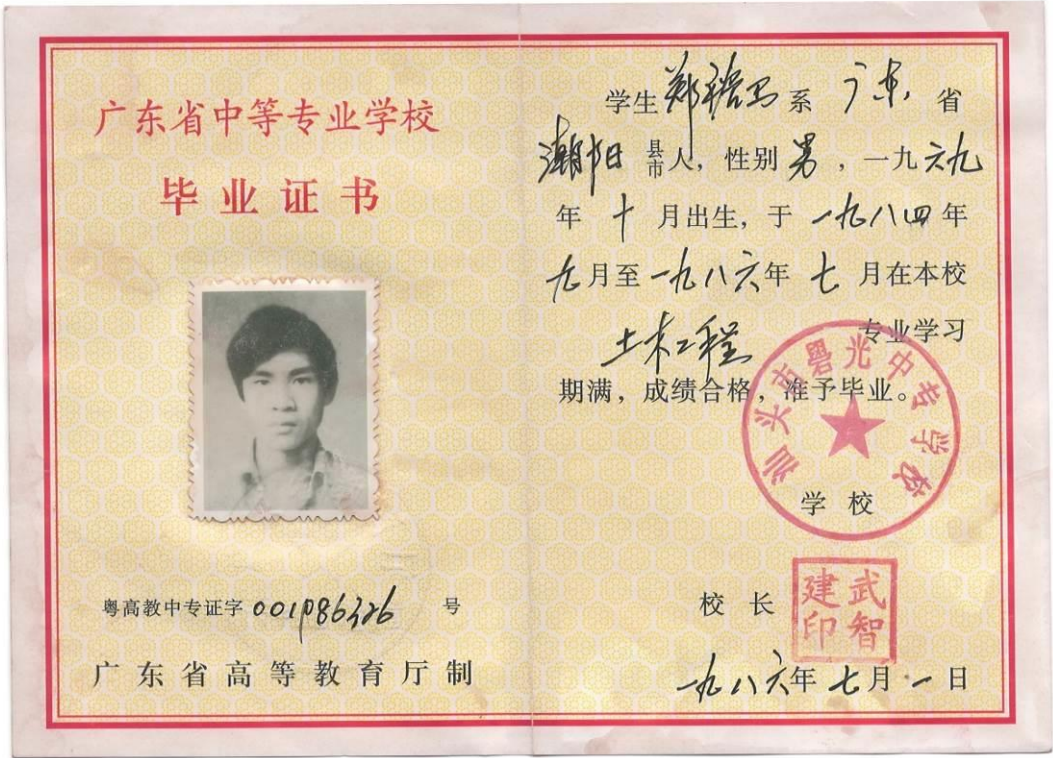 广东省中等专业学校
毕业证书
粤高教中专证字 001086326 号
广东省高等教育厅制
学生 郑 系 广东 省
潮阳 县市人，性别 男，一九六九
年 十 月出生，于 一九八四年
九月至一九八六年 七 月在本校
土木工程 专业学习
期满，成绩合格，准予毕业。
汕头市礐光中专学校
学校
校长 武智建印
一九八六年七月一日